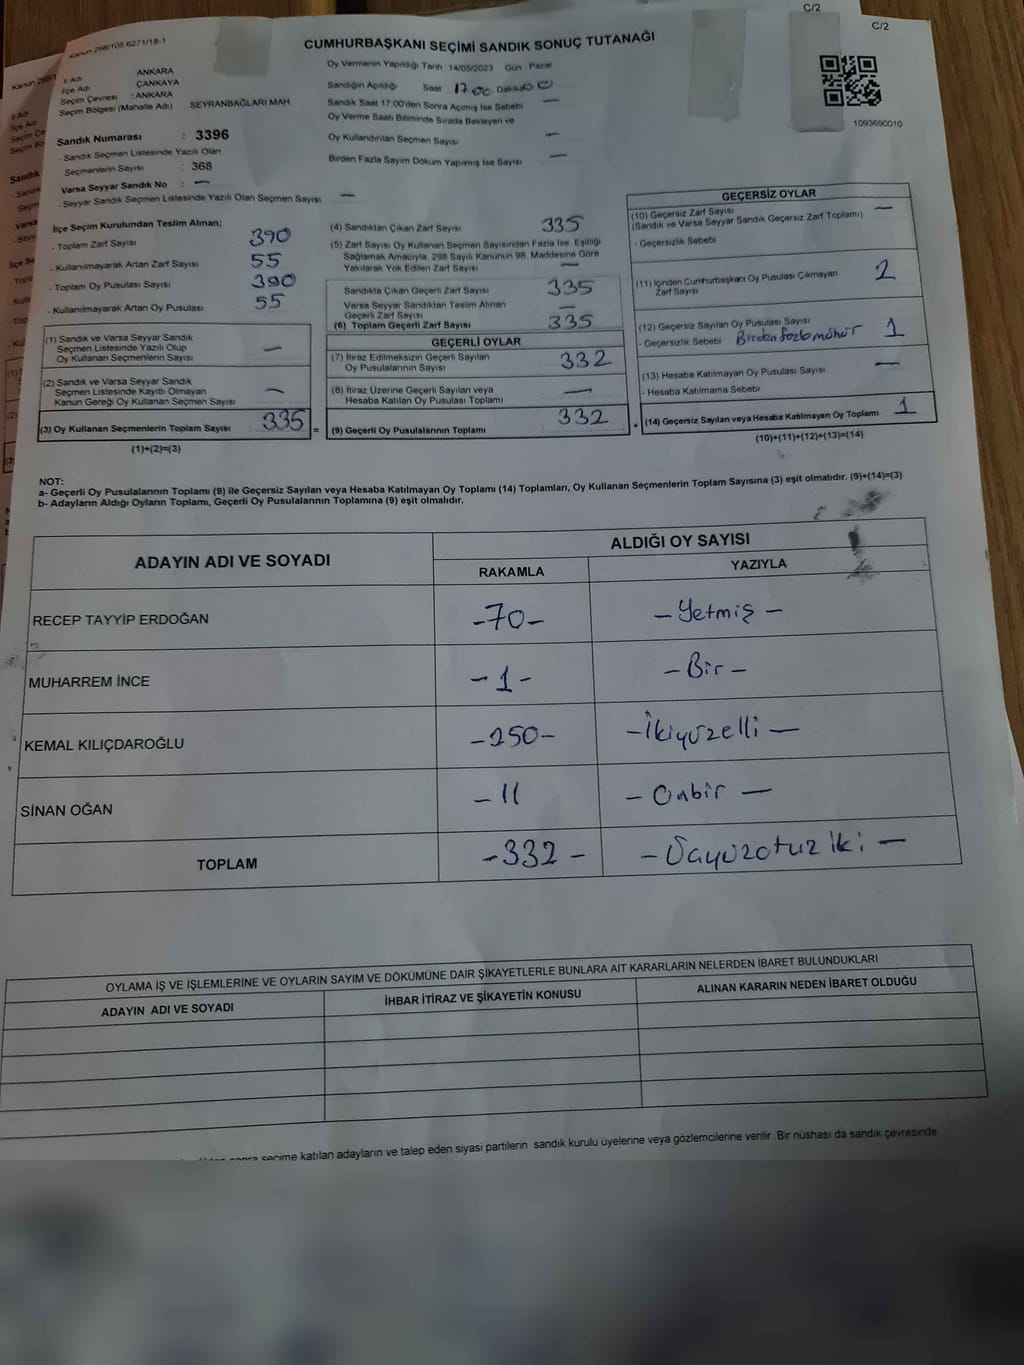 C/2
C/2
Kanun 298/105 6271/18-1
CUMHURBAŞKANI SEÇİMİ SANDIK SONUÇ TUTANAĞI
İl Adı ANKARA
İlçe Adı ÇANKAYA
Seçim Çevresi : ANKARA
Seçim Bölgesi (Mahalle Adı) SEYRANBAĞLARI MAH
Sandık Numarası : 3396
- Sandık Seçmen Listesinde Yazılı Olan
Seçmenlerin Sayısı : 368
Varsa Seyyar Sandık No : —
- Seyyar Sandık Seçmen Listesinde Yazılı Olan Seçmen Sayısı —
Oy Vermenin Yapıldığı Tarih 14/05/2023 Gün Pazar
Sandığın Açıldığı Saat 17.00 Dakika 00
Sandık Saat 17.00'den Sonra Açımış İse Sebebi —
Oy Verme Saati Bitiminde Sırada Bekleyen ve
Oy Kullandırılan Seçmen Sayısı —
Birden Fazla Sayım Döküm Yapılmış İse Sayısı —
1093690010
İlçe Seçim Kurulundan Teslim Alınan;
- Toplam Zarf Sayısı 390
- Kullanılmayarak Artan Zarf Sayısı 55
- Toplam Oy Pusulası Sayısı 390
- Kullanılmayarak Artan Oy Pusulası 55
(1) Sandık ve Varsa Seyyar Sandık
Seçmen Listesinde Yazılı Olup
Oy Kullanan Seçmenlerin Sayısı —
(2) Sandık ve Varsa Seyyar Sandık
Seçmen Listesinde Kayıtlı Olmayan
Kanun Gereği Oy Kullanan Seçmen Sayısı —
(3) Oy Kullanan Seçmenlerin Toplam Sayısı 335 =
(1)+(2)=(3)
(4) Sandıktan Çıkan Zarf Sayısı 335
(5) Zarf Sayısı Oy Kullanan Seçmen Sayısından Fazla İse, Eşitliği
Sağlamak Amacıyla, 298 Sayılı Kanunun 98. Maddesine Göre
Yakılarak Yok Edilen Zarf Sayısı —
Sandıkta Çıkan Geçerli Zarf Sayısı 335
Varsa Seyyar Sandıktan Teslim Alınan
Geçerli Zarf Sayısı —
(6) Toplam Geçerli Zarf Sayısı 335
GEÇERLİ OYLAR
(7) İtiraz Edilmeksizin Geçerli Sayılan
Oy Pusulalarının Sayısı 332
(8) İtiraz Üzerine Geçerli Sayılan veya
Hesaba Katılan Oy Pusulası Toplamı —
(9) Geçerli Oy Pusulalarının Toplamı 332 +
GEÇERSİZ OYLAR
(10) Geçersiz Zarf Sayısı —
(Sandık ve Varsa Seyyar Sandık Geçersiz Zarf Toplamı)
- Geçersizlik Sebebi
(11) İçinden Cumhurbaşkanı Oy Pusulası Çıkmayan
Zarf Sayısı 2
(12) Geçersiz Sayılan Oy Pusulası Sayısı
- Geçersizlik Sebebi Birden fazla mühür 1
(13) Hesaba Katılmayan Oy Pusulası Sayısı —
- Hesaba Katılmama Sebebi
(14) Geçersiz Sayılan veya Hesaba Katılmayan Oy Toplamı 1
(10)+(11)+(12)+(13)=(14)
NOT:
a- Geçerli Oy Pusulalarının Toplamı (9) ile Geçersiz Sayılan veya Hesaba Katılmayan Oy Toplamı (14) Toplamları, Oy Kullanan Seçmenlerin Toplam Sayısına (3) eşit olmalıdır. (9)+(14)=(3)
b- Adayların Aldığı Oyların Toplamı, Geçerli Oy Pusulalarının Toplamına (9) eşit olmalıdır.
ADAYIN ADI VE SOYADI ALDIĞI OY SAYISI
RAKAMLA YAZIYLA
RECEP TAYYİP ERDOĞAN -70- - Yetmiş -
MUHARREM İNCE -1- - Bir -
KEMAL KILIÇDAROĞLU -250- - İkiyüzelli -
SİNAN OĞAN - 11 - Onbir -
TOPLAM -332- - Üçyüzotuz iki -
OYLAMA İŞ VE İŞLEMLERİNE VE OYLARIN SAYIM VE DÖKÜMÜNE DAİR ŞİKAYETLERLE BUNLARA AİT KARARLARIN NELERDEN İBARET BULUNDUKLARI
ADAYIN ADI VE SOYADI İHBAR İTİRAZ VE ŞİKAYETİN KONUSU ALINAN KARARIN NEDEN İBARET OLDUĞU
sonra seçime katılan adayların ve talep eden siyasi partilerin sandık kurulu üyelerine veya gözlemcilerine verilir. Bir nüshası da sandık çevresinde